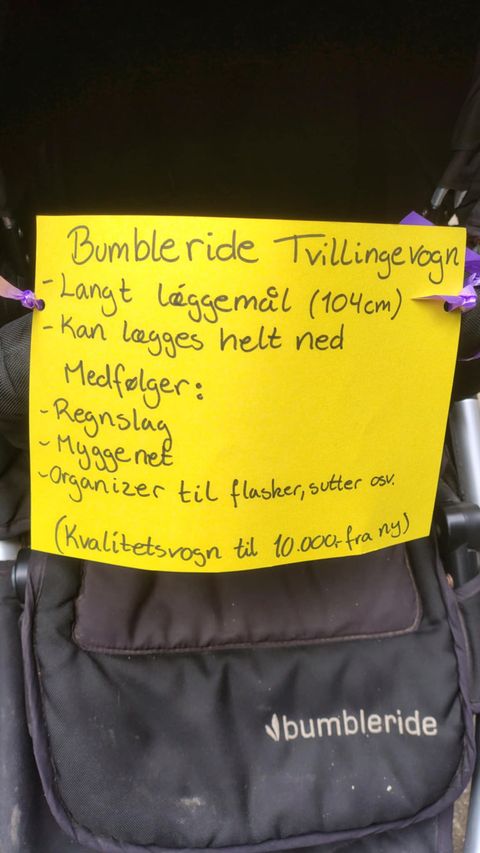 Bumbleride Tvillingevogn
- Langt læggemål (104cm)
- Kan lægges helt ned
Medfølger:
- Regnslag
- Myggenet
- Organizer til flasker, sutter osv.
(Kvalitetsvogn til 10.000,- fra ny)
bumbleride